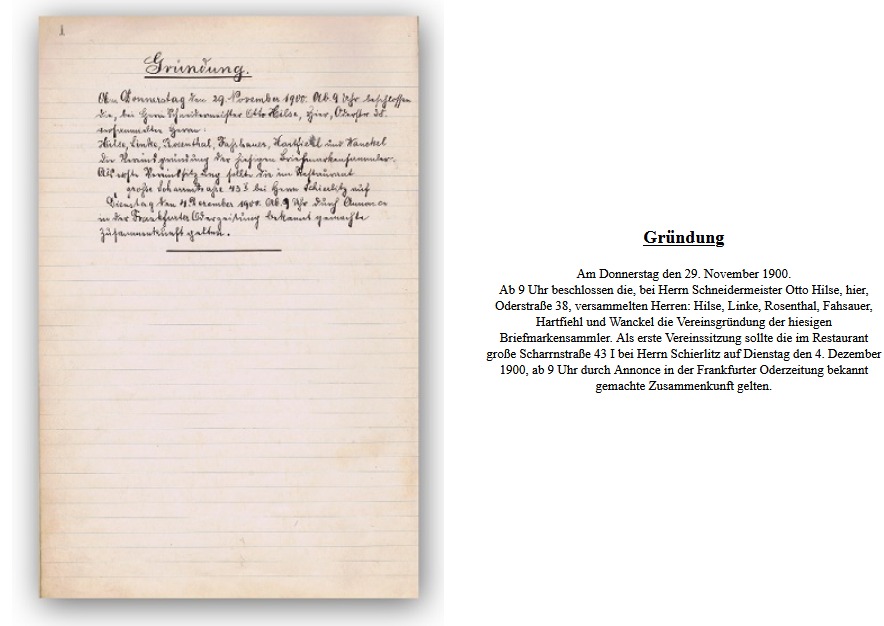 1
Gründung.
Am Donnerstag den 29. November 1900. Ab. 9 Uhr beschlossen
die, bei Herrn Schneidermeister Otto Hilse, hier, Oderstr 38.
versammelten Herrn:
Hilse, Linke, Rosenthal, Fahshauer, Hartfiehl und Wanckel
die Vereinsgründung der hiesigen Briefmarkensammler.
Als erste Vereinssitzung sollte die im Restaurant
große Scharrnstraße 43 I bei Herrn Schierlitz auf
Dienstag den 4. Dezember 1900. Ab. 9 Uhr durch Annonce
in der Frankfurter Oderzeitung bekannt gemachte
Zusammenkunft gelten.
Gründung
Am Donnerstag den 29. November 1900.
Ab 9 Uhr beschlossen die, bei Herrn Schneidermeister Otto Hilse, hier,
Oderstraße 38, versammelten Herren: Hilse, Linke, Rosenthal, Fahsauer,
Hartfiehl und Wanckel die Vereinsgründung der hiesigen
Briefmarkensammler. Als erste Vereinssitzung sollte die im Restaurant
große Scharrnstraße 43 I bei Herrn Schierlitz auf Dienstag den 4. Dezember
1900, ab 9 Uhr durch Annonce in der Frankfurter Oderzeitung bekannt
gemachte Zusammenkunft gelten.